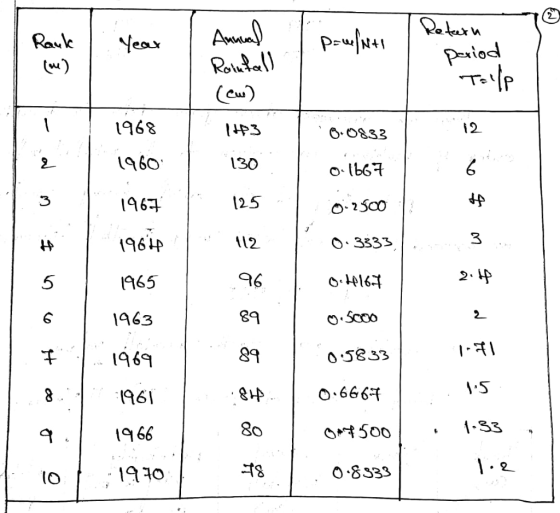 2
Rank (m) Year Annual Rainfall (cm) P=m/N+1 Return period T=1/P
1 1968 143 0.0833 12
2 1960 130 0.1667 6
3 1967 125 0.2500 4
4 1964 112 0.3333 3
5 1965 96 0.4167 2.4
6 1963 89 0.5000 2
7 1969 89 0.5833 1.71
8 1961 84 0.6667 1.5
9 1966 80 0.7500 1.33
10 1970 78 0.8333 1.2